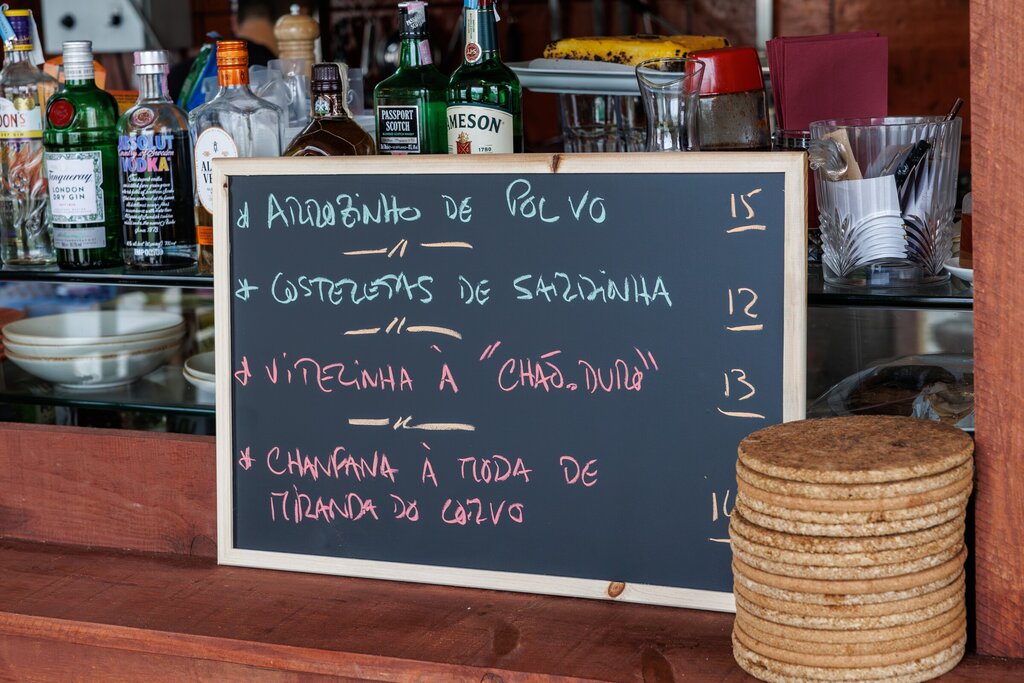 PASSPORT
SCOTCH
JAMESON
1780
Tanqueray
LONDON
DRY GIN
ABSOLUT
VODKA
* ARROZINHO DE POLVO 15
* COSTELETAS DE SARDINHA 12
* VITEZINHA À "CHÃO.DURO" 13
* CHANFANA À MODA DE
MIRANDA DO CORVO